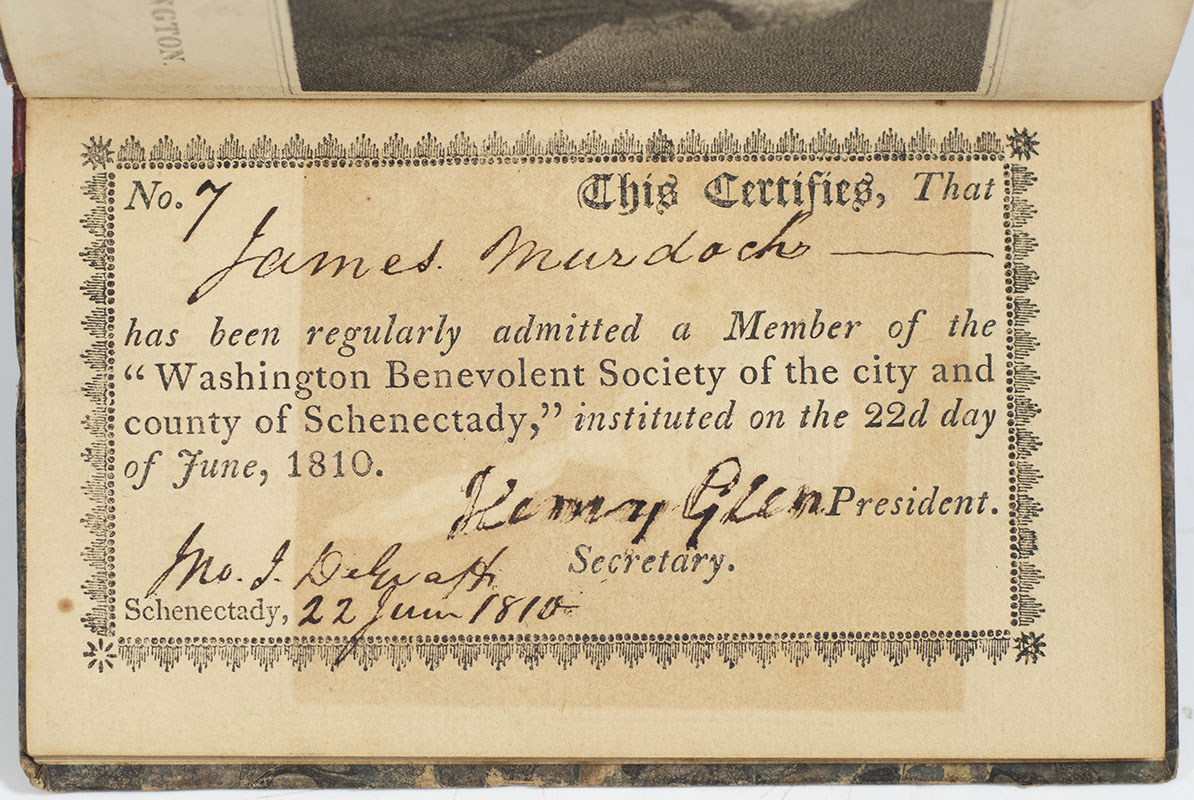 NGTON.
No. 7 This Certifies, That
James Murdoch
has been regularly admitted a Member of the
“Washington Benevolent Society of the city and
county of Schenectady,” instituted on the 22d day
of June, 1810.
Henry Glen President.
Jno. I. DeGraff Secretary.
Schenectady, 22 June 1810